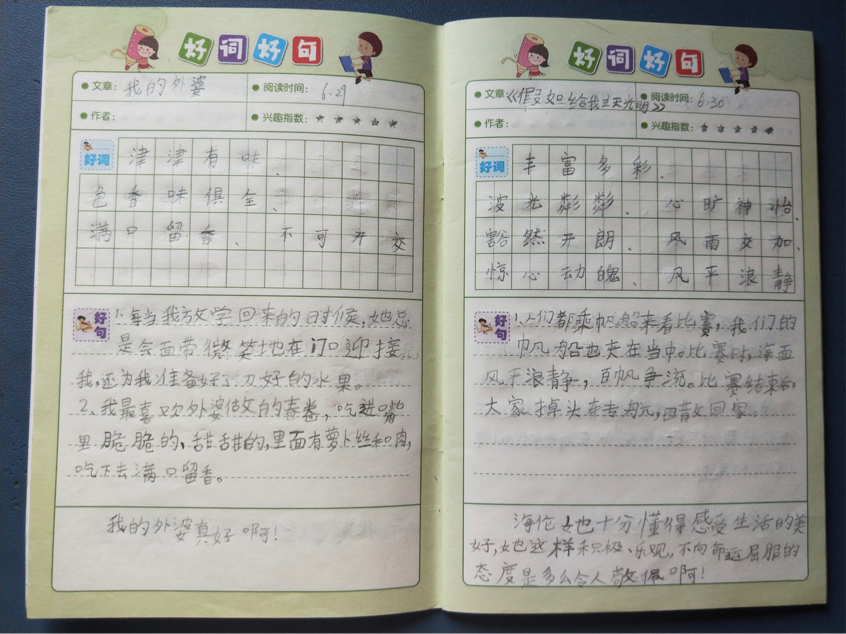 好词好句
文章：我的外婆 阅读时间：6.29
作者： 兴趣指数：★★★★★
好词 津津有味、
色香味俱全、
满口留香、不可开交
好句 1.每当我放学回来的时候，她总
是会面带微笑地在门口迎接
我，还为我准备好了刀好的水果。
2、我最喜欢外婆做的春卷，吃进嘴
里脆脆的，甜甜的，里面有萝卜丝和肉，
吃下去满口留香。
我的外婆真好啊！
好词好句
文章：《假如给我三天光明》 阅读时间：6.30
作者： 兴趣指数：★★★★★
好词 丰富多彩、
波光粼粼、心旷神怡、
豁然开朗、风雨交加、
惊心动魄、风平浪静
好句 1.人们都乘帆船来看比赛，我们的
帆船也夹在当中。比赛时，海面
风平浪静，百帆争流。比赛结束后，
大家掉头在专为元，四散回家。
海伦她十分懂得感受生活的美
好，她这样积极、乐观，不向命运屈服的
态度是多么令人敬佩啊！